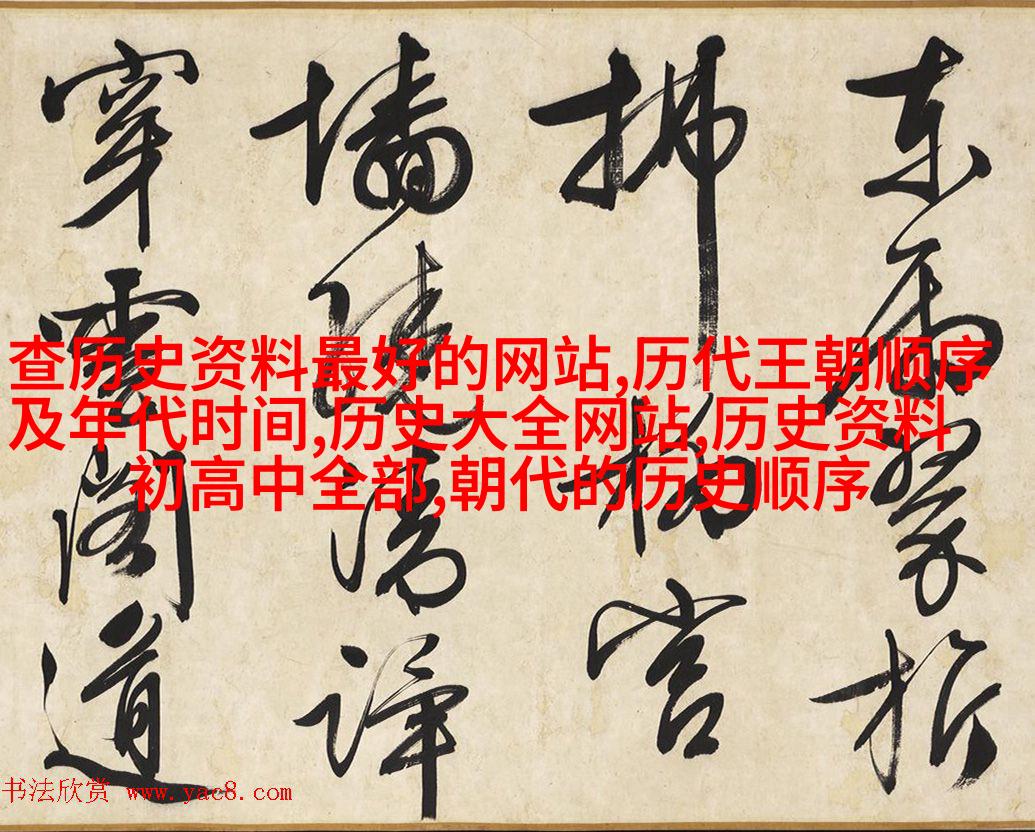 查历史资料最好的网站,历代王朝顺序
及年代时间,历史大全网站,历史资料
初高中全部,朝代的历史顺序
東翠
拂
墻清
穿雲閣道
书法欣赏 www.yac8.com